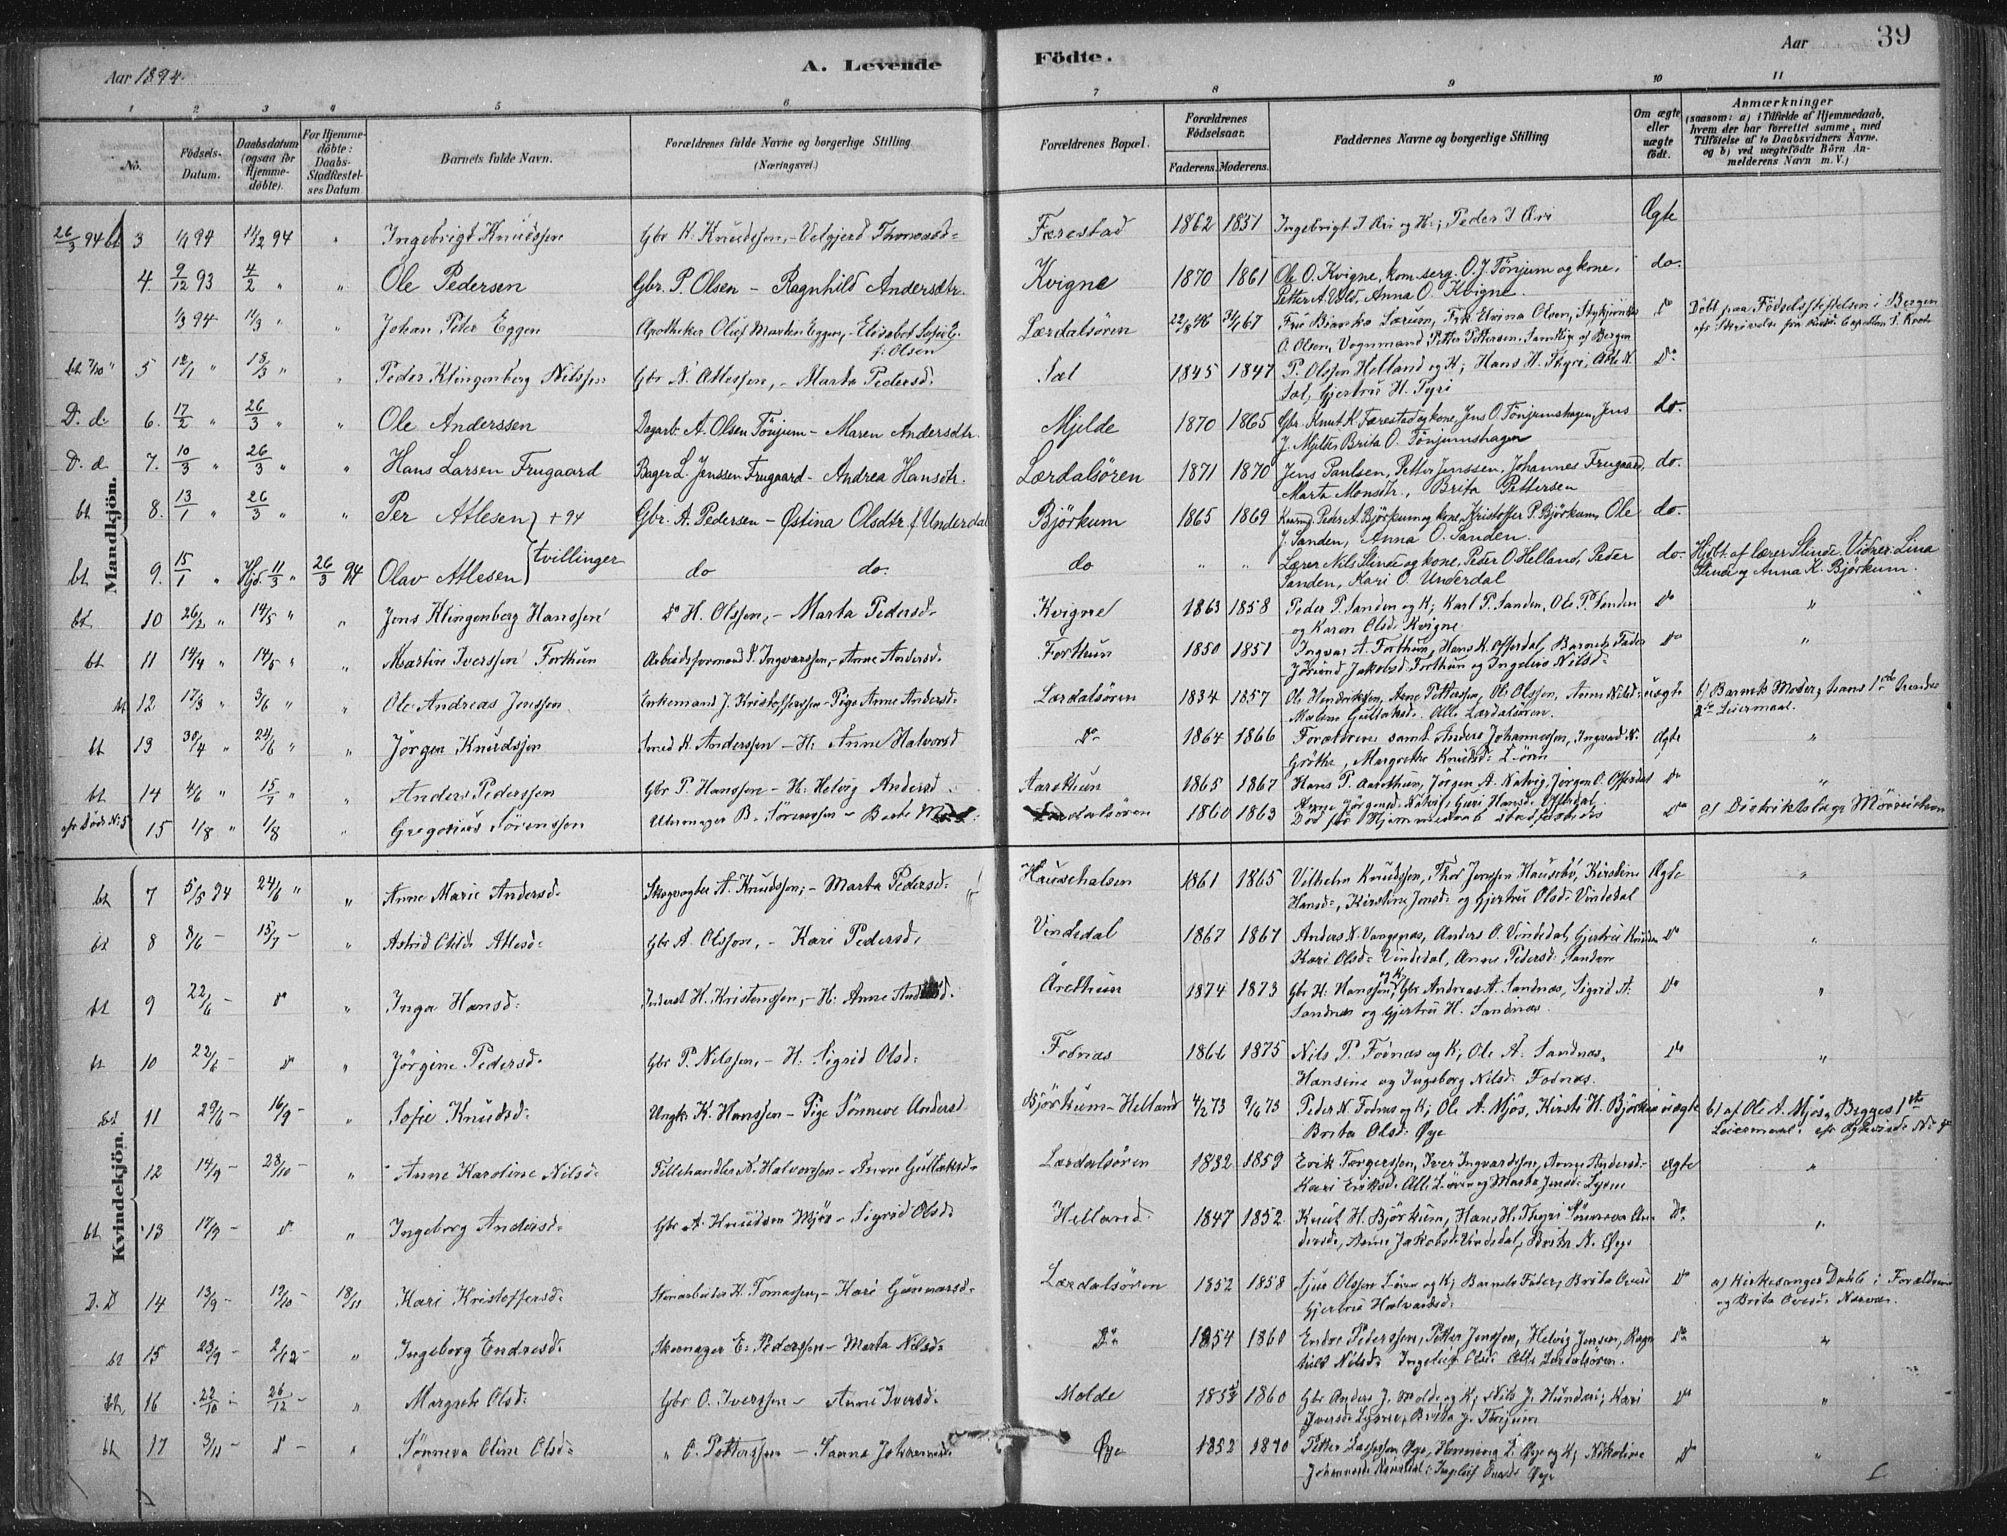 Aar 1894.
A. Levende
Födte.
Aar
39
1 2 3 4 5 6 7 8 9 10 11
No.
Födsels-Datum.
Daabsdatum (ogsaa for Hjemme-döbte).
For Hjemme-döbte: Daabs-Stadfæstel-ses Datum
Barnets fulde Navn.
Forældrenes fulde Navne og borgerlige Stilling (Næringsvei.)
Forældrenes Bopæl.
Forældrenes Födselsaar.
Faderens. Moderens.
Faddernes Navne og borgerlige Stilling
Om ægte eller uægte födt.
Anmærkninger
(saasom: a) i Tilfælde af Hjemmedaab, hvem der har forrettet samme, med Tilföielse af to Daabsvidners Navne, og b) ved uægtefödte Börn An-melderens Navn m. V.)
Mandkjön.
26/3 94 bt 3 1/1 94 11/2 94 " Ingebrigt Knudssen Gbr K. Knudssen, - Velgjerd Thomasd= Færestad 1862 1851 Ingebrigt J Æri og K; Peder J Æri Ægte
4. 9/12 93 4/2 " " Ole Pedersen Gbr. P. Olsen - Ragnhild Andersdtr. Kvigne 1870 1861 Ole O. Kvigne, kom. serg. O. J. Tönjum og kone,
Petter A. Anna O. Kvigne. do.
1/3 94 11/3 " " Johan Peter Eggen Apotheker Oluf Martin Eggen, - Elisabet Sofie E. f. Olsen Lærdalsören 22/8 46 67 Fru Bianka Sörum, Frk Elvina Olsen,
O. Olsen, Vognmand Petter Pettersen. Samtlige af Bergen D Döbt paa Födselsstiftelsen i Bergen
bt 7/10 " 5 12/1 " 18/3 " " Peder Klingenberg Nilssen Gbr N. Atlessen, - Marta Pedersd. Sæl 1845 1847 P. Olsson Helland og K; Hans H. Thyri, Atle N.
Sæl, Gjertru H. Tyri Do
D. d. 6. 17/2 " 26/3 " " Ole Anderssen Dagarb. A. Olsen Tönjum - Maren Andersdtr. Mjelde 1870 1865 Gbr. Knut K. Færestad og kone, Jens O. Tönjumshagen, Jens
J. Mjelde, Brita O. Tönjumshagen do.
D. d. 7. 10/3 " 26/3 " " Hans Larsen Frugaard Bager L. Jenssen Frugaard - Andrea Hansdtr. Lærdalsören 1871 1870 Jens Paulsen, Petter Jenssen, Johannes Frugaard,
Marta Monsdtr., Brita Pettersen do.
bt 8. 13/1 " 26/3 " " Per Atlesen + 94 Gbr. A. Pedersen - Østina Olsdtr. f. Underdal Björkum 1865 1869 Peder A. Björkum og kone, Kristoffer P. Björkum, Ole
J. Sanden, Anna O. Sanden. do.
tvillinger
bt 9. 15/1 " Hjd. 11/3 " 26/3 94 Olav Atlesen do do. do " " Lærer Nils Slinde og kone, Peder O. Helland, Peder
Sanden, Kari O. Underdal do. Hjdbt. af lærer Slinde. Vidner: Lina
Slinde og Anna K. Björkum.
bt. 10 26/2 " 14/5 " " Jens Klingenberg Hanssen Do H. Olssen, - Marta Pedersd= Kvigne 1863 1858 Peder P. Sanden og K; Karl P. Sanden, Ole P. Sanden
og Karen Olsd. Kvigne Do "
bt 11 14/4 " 14/5 " " Martin Iverssen Forthun Arbeidsformand I. Ingvarssen, - Anne Andersd= Forthun 1850 1851 Ingvar A. Forthun, Hans K. Offerdal, Barnets Fader
Jörund Jakobsd. Forthun og Ingeleiv Nilsd= Do "
bt 12 17/3 " 3/6 " " Ole Andreas Jenssen Enkemand J. Kristofferssen - Pige Anne Andersd= Lærdalsören 1834 1857 Ole Hendrikssen, Arne Petterssen, Ole Olssen, Anne Nilsd=
Malene Gullaksd=. Alle Lærdalsören. uægte b) Barnets Moder; hans 1ste hendes
2de Leiermaal.
bt 13 30/4 " 24/6 " " Jörgen Knudssen Smed K. Anderssen - H: Anne Halvorsd Do 1864 1866 Forældrene samt Anders Johannessen, Ingvald N.
Gröthe, Margrethe Knudsd= L.ören Ægte "
bt 14 4/6 " 15/7 " " Anders Pederssen Gbr P. Hanssen - H: Helvig Andersd. Aarethun 1865 1867 Hans P. Aarethun, Jörgen A. Natvig, Jörgen O. Offerdal
Anne Jörgensd= Natvig, Guri Hansd= Offerdal Do "
15 1/8 " 1/8 Gregorius Sörenssen Uhrmager B. Sörenssen - Berte Lærdalsören 1860 1863 Död för Hjemmedaab stadfæstedes Do a) Distriktslæge
Kvindekjön.
bt 7 5/5 94 24/6 " " Anne Marie Andersd= Skogvogter A. Knudssen; - Marta Pedersd= Hausehalsen 1861 1865 Vilhelm Knudssen, Thor Jenssen Hausebö, Kirstine
Hansd=, Kirstine Jonsd= og Gjertru Olsd= Vindedal Ægte "
bt 8 8/6 - 15/7 - " Astrid Atlesd= Gbr A. Olssen, - Kari Pedersd, Vindedal 1867 1867 Anders N. Vangenæs, Anders O. Vindedal, Gjertru
Kari Olsd= Vindedal, Anne Pedersd= Sanden Do "
bt 9 22/6 - D " Inga Hansd= Inderst H. Kristenssen, - H: Anne Årethun 1874 1873 Gbr H. Hanssen og K, Gbr Andreas A. Sandnæs, Sigrid A.
Sandnæs og Gjertru H. Sandnæs. Do "
bt 10 22/6 - D " Jörgine Pedersd= Gbr P. Nilssen, - H. Sigrid Olsd= Fodnæs 1866 1875 Nils P. Fodnæs og K; Ole A. Sandnæs,
Hansine og Ingeborg Nilsd= Fodnæs. Do "
bt 11 29/6 - 16/9 - " Sofie Knudsd= Ungk. K. Hanssen - Pige Sönneve Andersd Björkum - Helland 4/2 73 9/6 73 Peder N. Fodnæs og K; Ole A. Mjös, Kirsti H. Björkum
Brita Olsd= Øye uægte b) af Ole A. Mjös, Begges 1ste
Leiermaal.
12 14/9 - 28/10 - " Anne Karoline Nilsd= Tillehandler N. Halvorssen - Anne Gullaksd= Lærdalsören 1832 1859 Erik Torgerssen, Iver Ingvardssen, Anne Andersd=
Kari Eriksd= Alle L.ören og Marta Jensd= Lysne ægte "
bt 13 17/9 - D " Ingeborg Andersd= Gbr A. Knudsen Mjös - Sigrid Olsd= Helland 1847 1852 Knut H. Björkum, Hans H. Thyri Sönneva An-
dersd=, Anne Jakobsd= Vindedal, Brita A. Øye Do "
D. D 14 13/9 - 19/10 - 18/11 Kari Kristoffersd= Stenarbeider K. Tomassen, - Kari Gunnarsd= Lærdalsören 1852 1858 Sjur Olssen Lören og K; Barnets Fader, Brita
Gjertru Halvardsd= Do a) Kirkesanger Dahle i Forældrenes
og Brita
bt 15 23/9 - 2/12 - " Ingeborg Endresd= Skomager E. Pederssen - Marta Nilsd= Do 1854 1860 Endre Pederssen, Petter Jenssen, Helvig Jensen, Ragn
hild Nilsd= Ingeleif Olsd= Alle Lærdalsören. Do "
bt. 16 22/10 - 26/12 - " Margrete Olsd= Gbr O. Iverssen - Anne Iversd= Molde 1855 1860 Gbr Anders J. Molde og K; Nils J. Hunderi; Kari
Iversd= Lysne, Brita J. Tönjum Do "
bt 17 3/11 - D - " Sönneva Oline Olsd= " O. Petterssen - Sanna Johannesd= Øye 1852 1870 Petter Larssen Øye, Henning L. Øye og K; Nikoline
Johannesd= Ingeleif Øye Do "